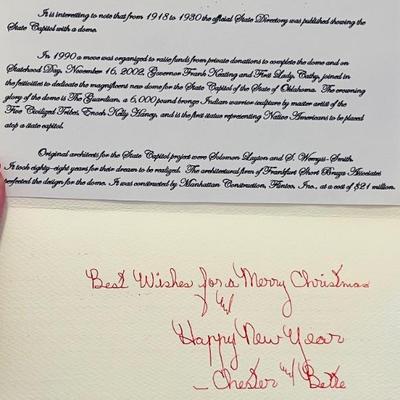 It is interesting to note that from 1918 to 1930 the official State Directory was published showing the
State Capitol with a dome.
In 1990 a move was organized to raise funds from private donations to complete the dome and on
Statehood Day, November 16, 2002, Governor Frank Keating and First Lady, Cathy, joined in
the festivities to dedicate the magnificent new dome for the State Capitol of the State of Oklahoma. The crowning
glory of the dome is The Guardian, a 6,000 pound bronze Indian warrior sculpture by master artist of the
Five Civilized Tribes, Enoch Kelly Haney, and is the first statue representing Native Americans to be placed
atop a state capitol.
Original architects for the State Capitol project were Solomon Layton and S. Wemyss-Smith.
It took eighty-eight years for their dream to be realized. The architectural firm of Frankfurt Short Bruza Associates
perfected the design for the dome. It was constructed by Manhattan Construction, Flintco, Inc., at a cost of $21 million.
Best Wishes for a Merry Christmas
&
Happy New Year
- Chester & Bette